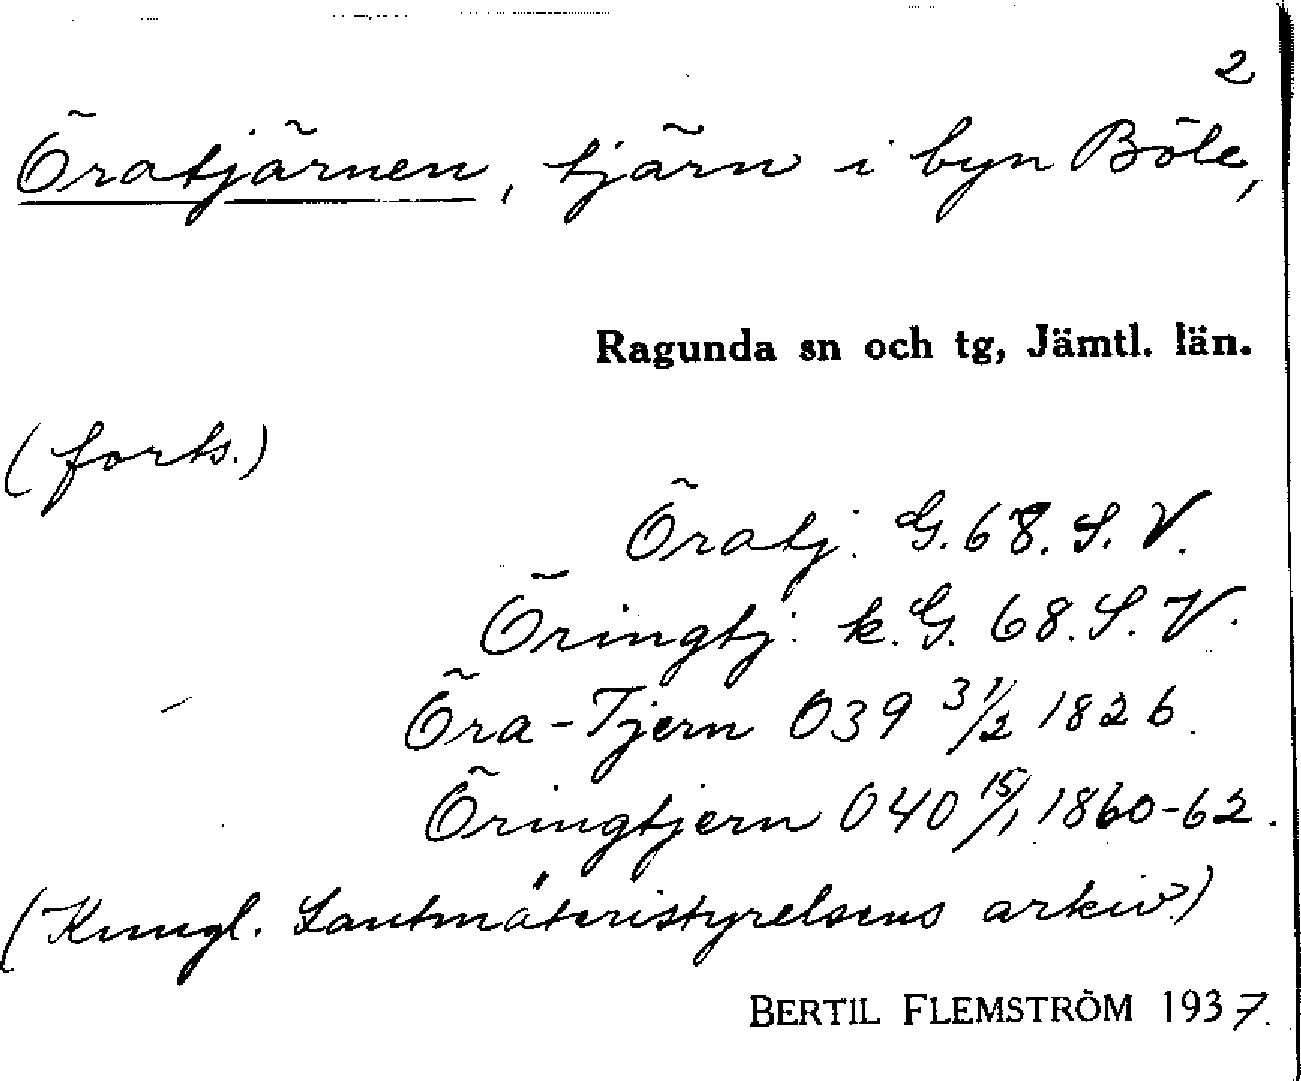 2
Öratjärnen, tjärn i byn Böle,
Ragunda sn och tg, Jämtl. län.
(forts.)
Öratj. G. 68. S. V.
Öringtj. k. G. 68. S. V.
Öra-Tjern 039 3 1/2 1826.
Öringtjern 040 15/1 1860-62.
(Kungl. Lantmäteristyrelsens arkiv.)
BERTIL FLEMSTRÖM 1937.